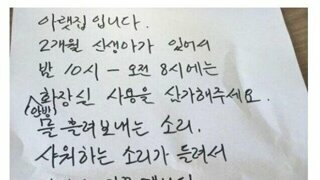 아랫집입니다.
2개월 신생아가 있어서
밤 10시 - 오전 8시에는
화장실 사용을 삼가해주세요.
(안방)
물 흘려보내는 소리.
샤워하는 소리가 들려서